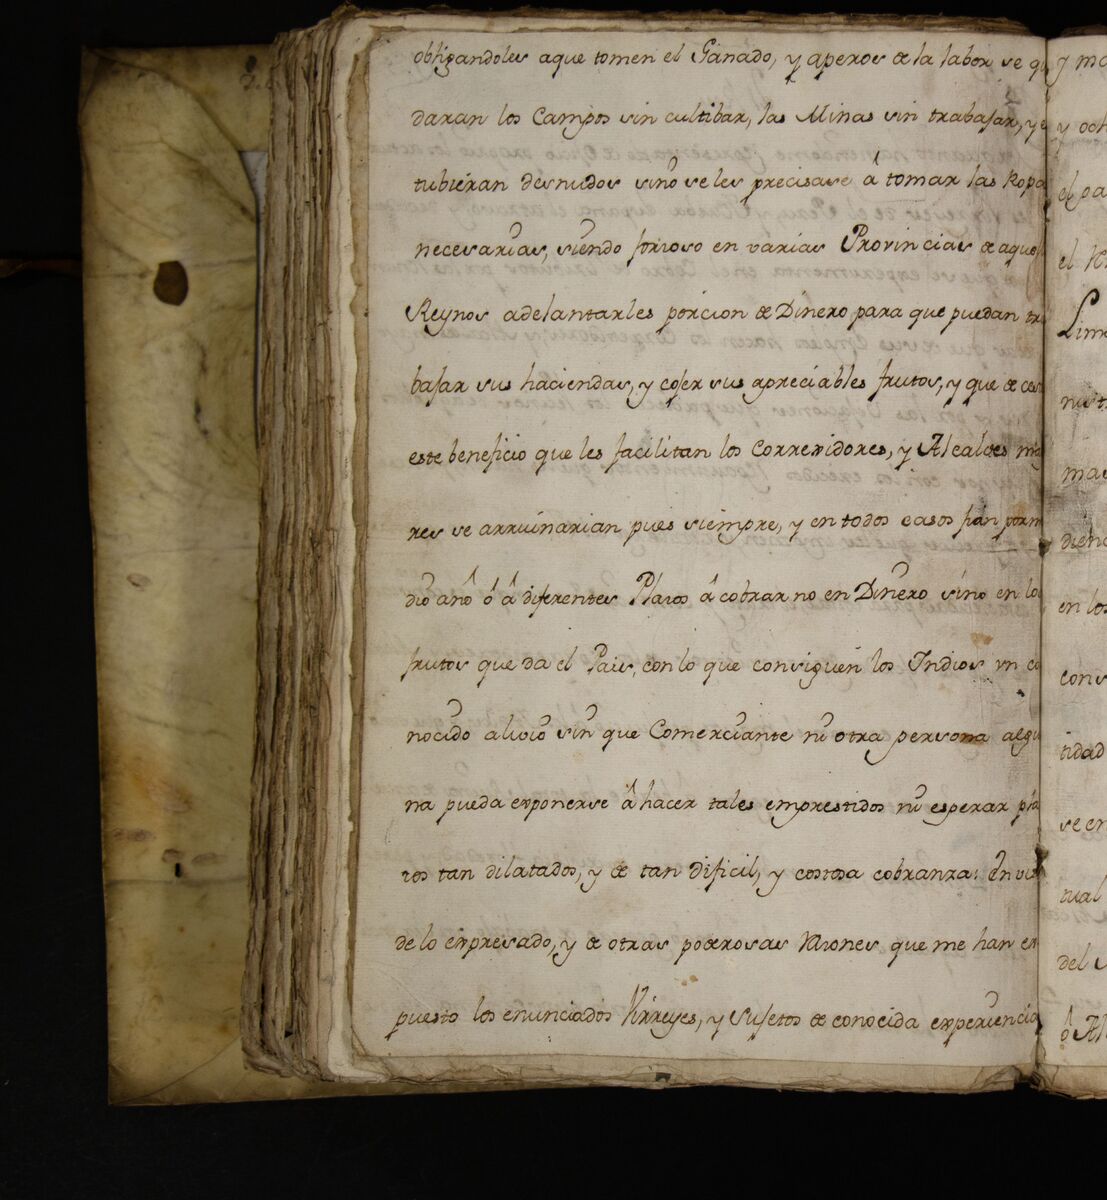 obligandoles aque tomen el Ganado, y aperos de la labor se q
daran los Campos sin cultibar, las Minas sin trabajar, y e
tubieran desnudos sino seles precisase á tomar las Ropa
necesarias, siendo forzoso en varias Provincias de aque
Reynos adelantarles porcion de Dinero para que puedan tr
bajar sus haciendas, y cojer sus apreciables frutos, y que de ces
este beneficio que les facilitan los Correxidores, y Alcaldes
res se arruinarian pues siempre, y en todos casos fian porm
dio año ó á diferentes Plazos á cobrar no en Dinero sino en lo
frutos que da el Pais, con lo que consiguen los Indios vn co
nocido alivio sin que Comerciante ni otra persona algu
na pueda exponerse á hacer tales emprestidos ni esperar pla
zos tan dilatados, y de tan dificil, y costosa cobranza: En vis
de lo expresado, y de otras poderosas razones que me han ex
puesto los enunciados Virreyes, y Sujetos de conocida experiencia
y ma
y och
el pa
el
Lim
en los
cons
tidad
se en
tual
del
ó Al